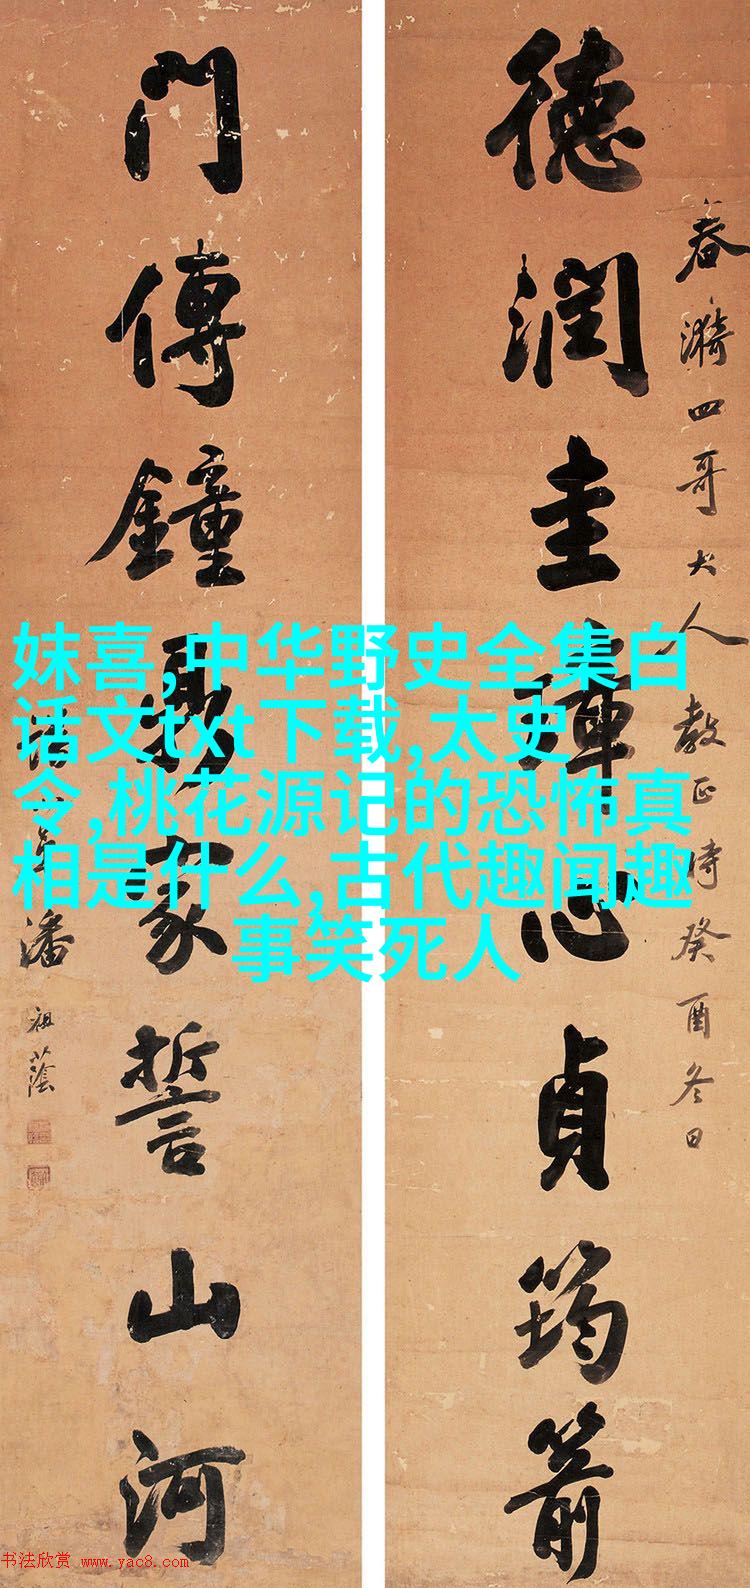 春漪四哥大人教正時癸酉冬日
德潤圭璋心貞筠箭
門傳鐘鼎家誓山河
潘祖蔭
妹喜,中华野史全集白
话文txt下载,太史
令,桃花源记的恐怖真
相是什么,古代趣闻趣
事笑死人
书法欣赏 www.yac8.com